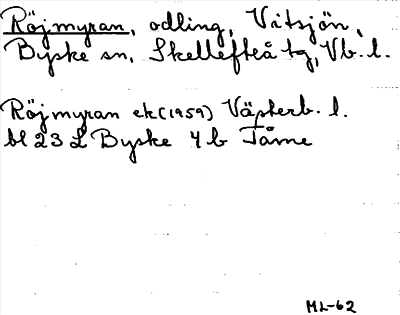 Röjmyran, odling, Vitsjön,
Byske sn, Skellefteå tg, Vb. l.
Röjmyran ek (1959) Västerb. l.
bl 23 L Byske 4 b Tåme
ML-62